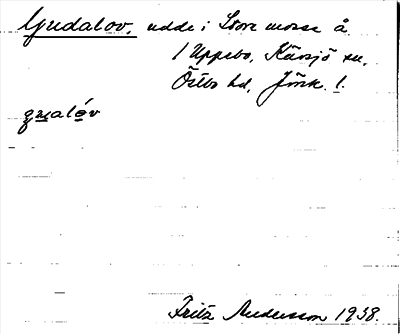 Gudalov, udde i Store mosse å
/ Uppebo, Kärsjö sn.
Östbo hd, Jönk. l.
gualóv
Fritz Andersson 1938.